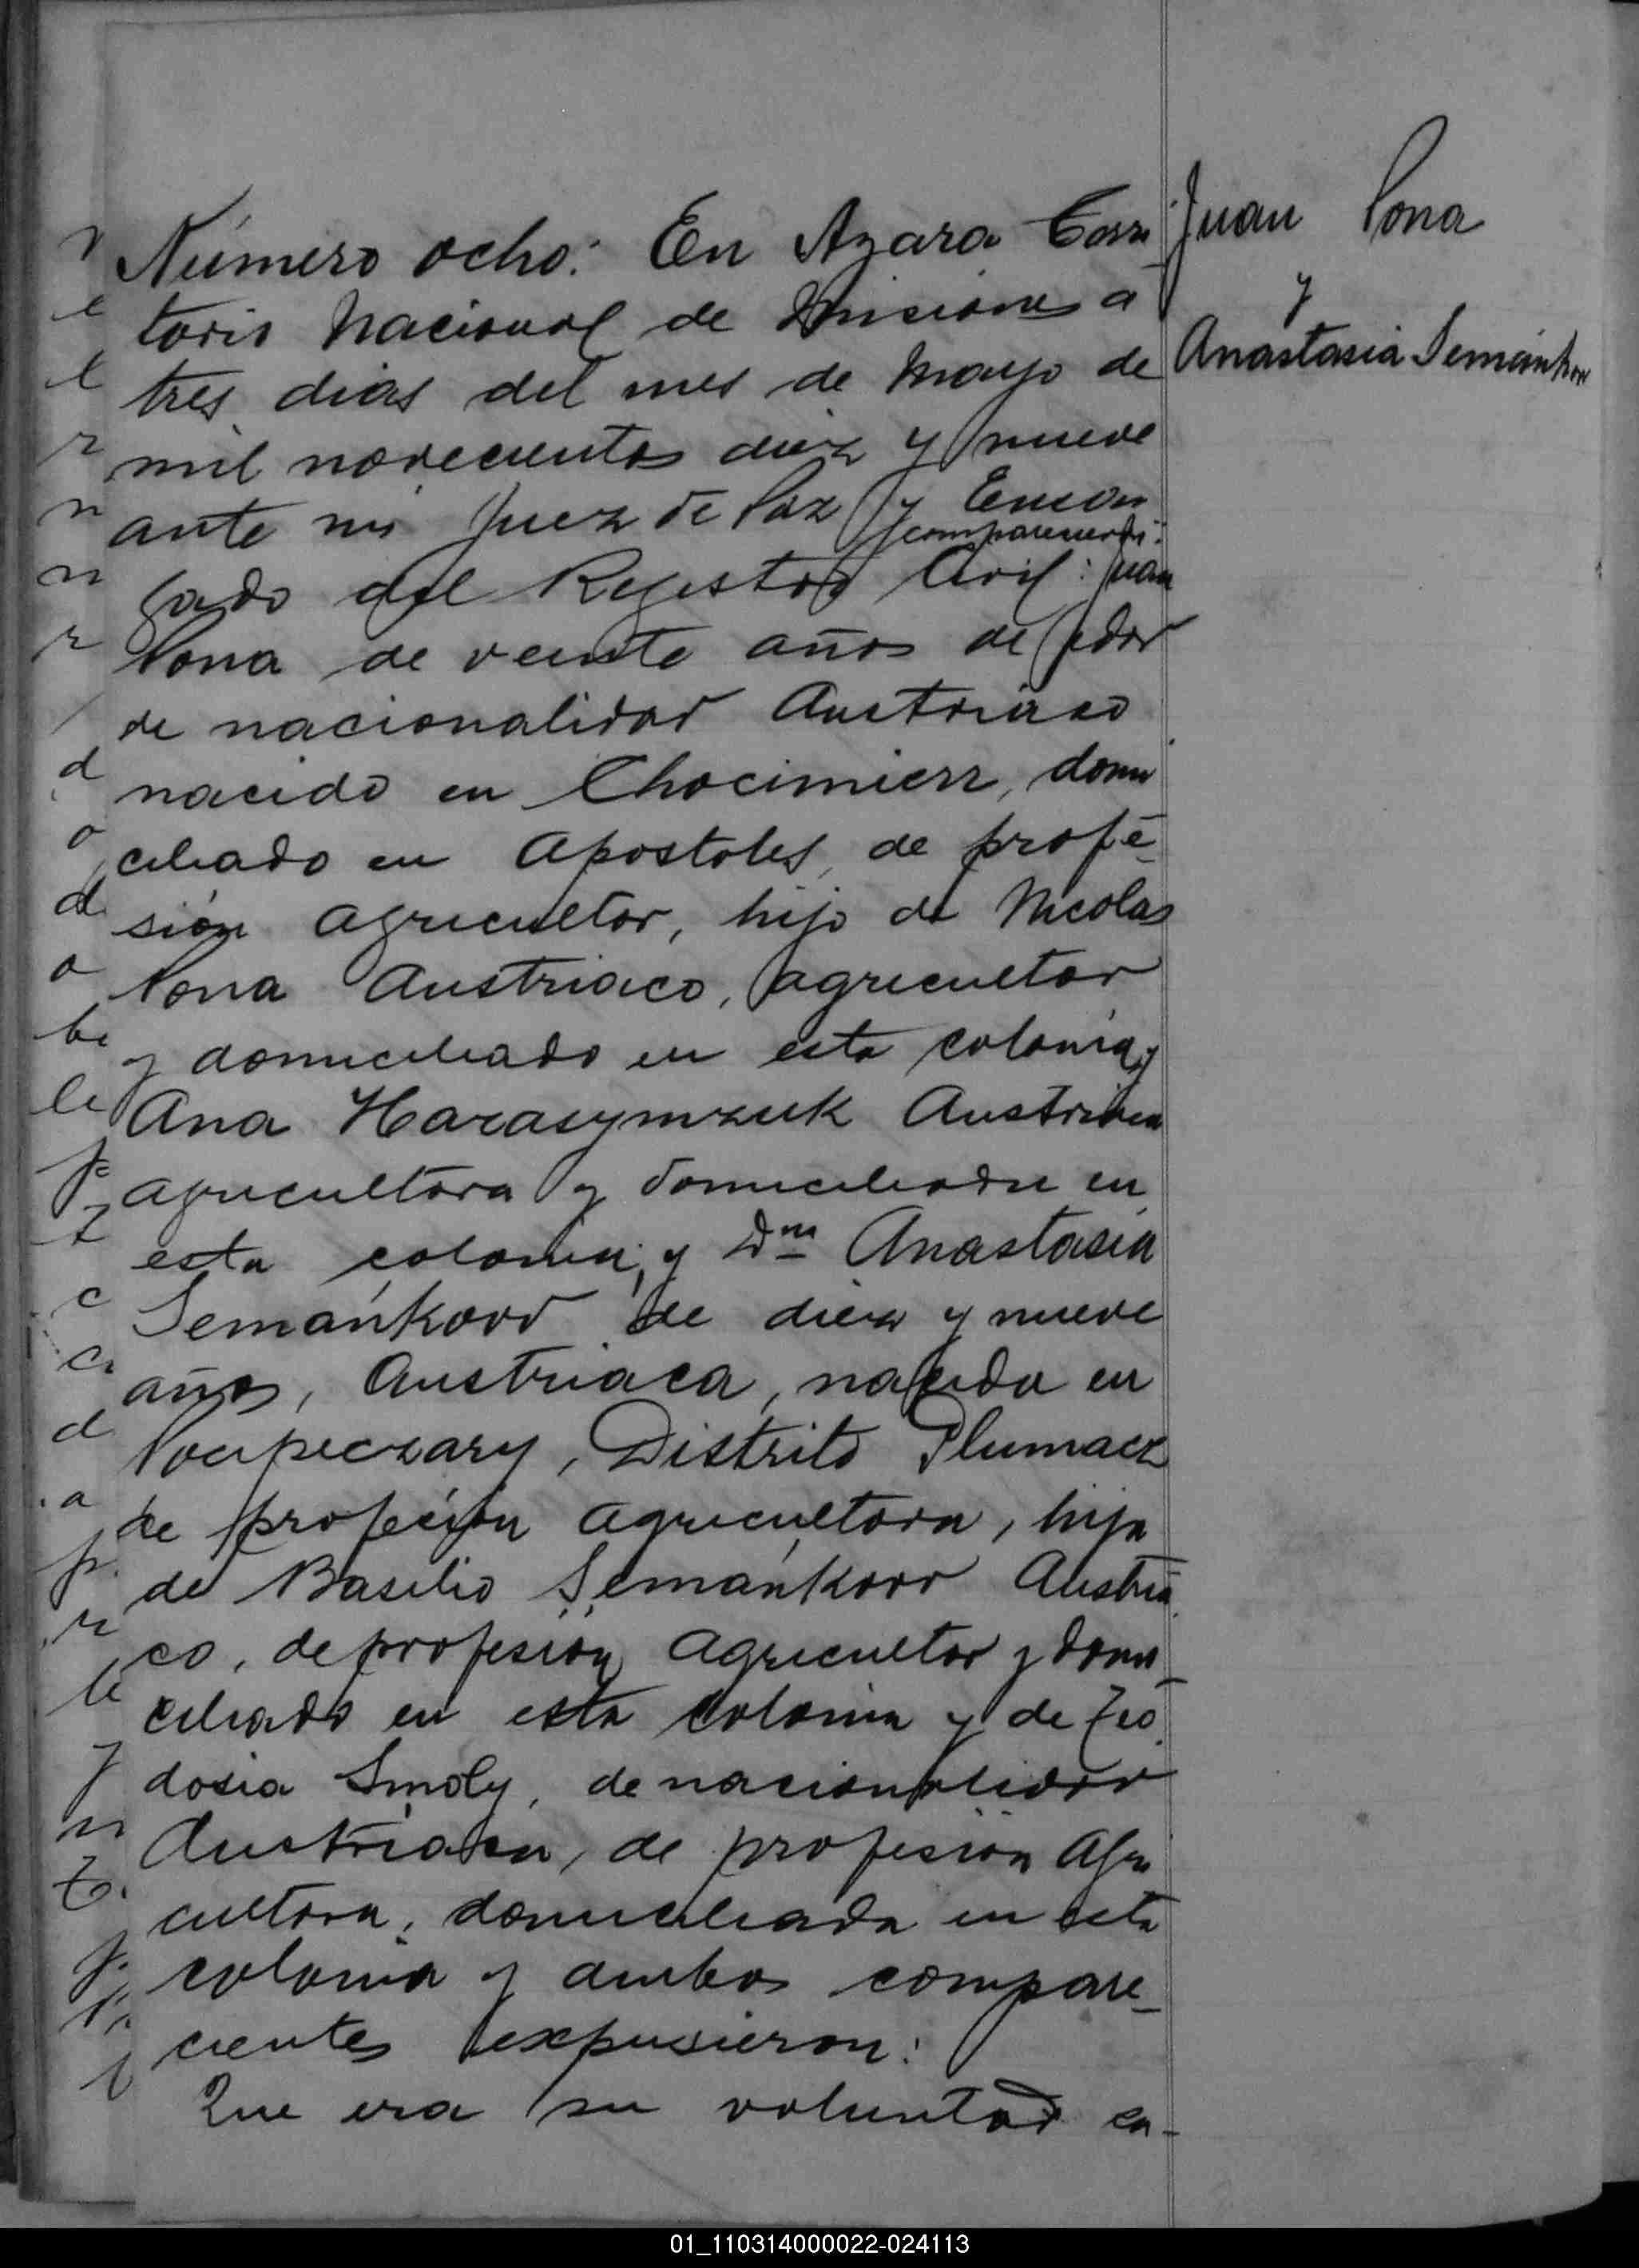 Juan Pona
y
Anastasia Semánkow
Número ocho: En Azara Terri
torio Nacional de Misiones a
tres dias del mes de Mayo de
mil novecientos diez y nueve
ante mi Juez de Paz y Encar
comparecierón:
gado del Registro Civil: Juan
Pona de veinte años de edad
de nacionalidad Austriaco
nacido en Chocimierz, domi
ciliado en Apostoles, de profe-
sión agricultor, hijo de Nicolas
Pona Austriaco, agricultor
y domiciliado en esta colonia y
Ana Harasymzuk Austriaca
agricultora y domiciliada en
esta colonia, y Dña Anastasia
Semánkovd de diez y nueve
años, Austriaca, nacida en
Distrito Tlumacz
de profeción agricultora, hija
de Basilio Semánkovv Austria
co, de profesión agricultor y domi-
ciliado en esta colonia y de Teo
dosia Smoly, de nacionalidad
Austriaca, de profesión Agri
cultora, domiciliada en esta
colonia y ambos compare-
cientes expusieron:
Que era su voluntad ca-
01_110314000022-024113